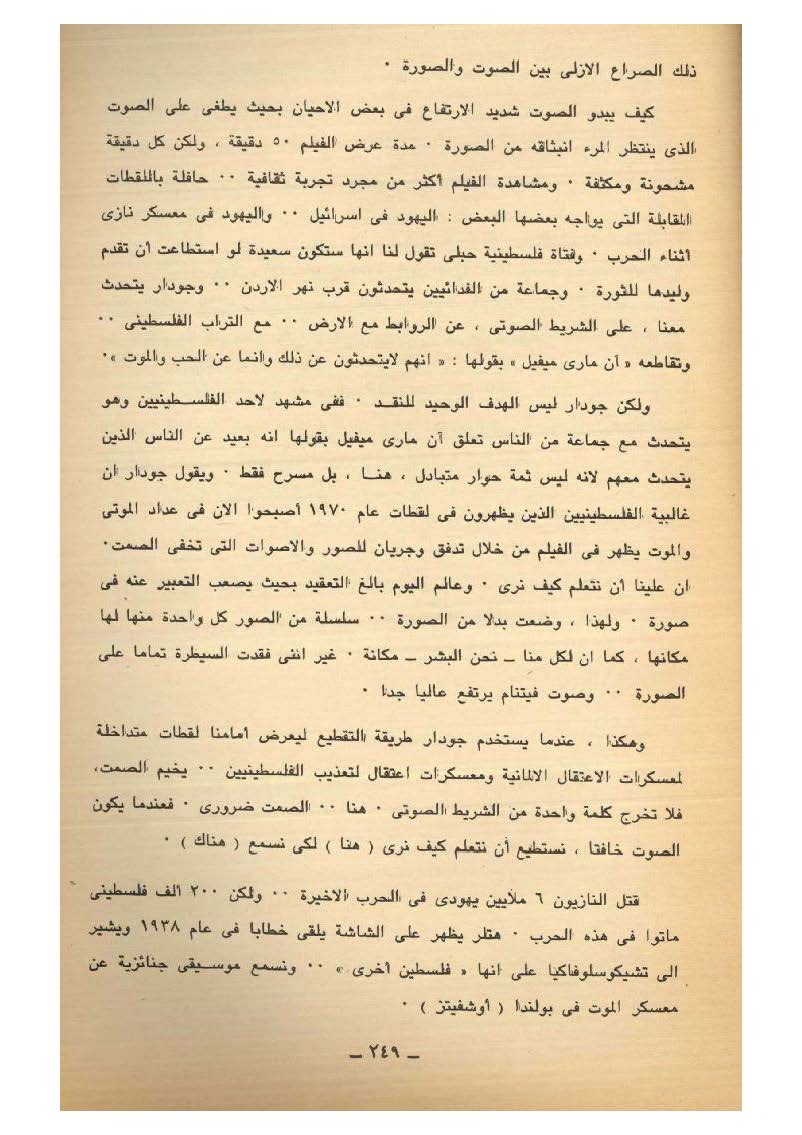 ذلك الصراع الازلى بين الصوت والصورة ٠
كيف يبدو الصوت شديد الارتفاع فى بعض الاحيان بحيث يطغى على الصوت
الذى ينتظر المرء انبثاقه من الصورة ٠ مدة عرض الفيلم ٥٠ دقيقة ، ولكن كل دقيقة
مشحونة ومكثفة ٠ ومشاهدة الفيلم أكثر من مجرد تجربة ثقافية ٠٠ حافلة باللقطات
المقابلة التى يواجه بعضها البعض : اليهود فى اسرائيل ٠٠ واليهود فى معسكر نازى
أثناء الحرب ٠ وفتاة فلسطينية حبلى تقول لنا انها ستكون سعيدة لو استطاعت أن تقدم
وليدها للثورة ٠ وجماعة من الفدائيين يتحدثون قرب نهر الاردن ٠٠ وجودار يتحدث
معنا ، على الشريط الصوتى ، عن الروابط مع الارض ٠٠ مع التراب الفلسطينى ٠٠
وتقاطعه « آن مارى ميفيل » بقولها : « انهم لايتحدثون عن ذلك وانما عن الحب والموت »٠
ولكن جودار ليس الهدف الوحيد للنقـد ٠ ففى مشهد لاحد الفلسـطينيين وهو
يتحدث مع جماعة من الناس تعلق آن مارى ميفيل بقولها انه بعيد عن الناس الذين
يتحدث معهم لانه ليس ثمة حوار متبادل ، هنـا ، بل مسرح فقط ٠ ويقول جودار ان
غالبية الفلسطينيين الذين يظهرون فى لقطات عام ١٩٧٠ أصبحوا الان فى عداد الموتى
والموت يظهر فى الفيلم من خلال تدفق وجريان للصور والاصوات التى تخفى الصمت٠
ان علينا أن نتعلم كيف نرى ٠ وعالم اليوم بالغ التعقيد بحيث يصعب التعبير عنه فى
صورة ٠ ولهذا ، وضعت بدلا من الصورة ٠٠ سلسلة من الصور كل واحدة منها لها
مكانها ، كما ان لكل منا ــ نحن البشر ــ مكانة ٠ غير اننى فقدت السيطرة تماما على
الصورة ٠٠ وصوت فيتنام يرتفع عاليا جدا ٠
وهكذا ، عندما يستخدم جودار طريقة التقطيع ليعرض أمامنا لقطات متداخلة
لمعسكرات الاعتقال الالمانية ومعسكرات اعتقال لتعذيب الفلسطينيين ٠٠ يخيم الصمت،
فلا تخرج كلمة واحدة من الشريط الصوتى ٠ هنا ٠٠ الصمت ضرورى ٠ فعندما يكون
الصوت خافتا ، نستطيع أن نتعلم كيف نرى ( هنا ) لكى نسمع ( هناك ) ٠
قتل النازيون ٦ ملايين يهودى فى الحرب الاخيرة ٠٠ ولكن ٢٠٠ ألف فلسطينى
ماتوا فى هذه الحرب ٠ هتلر يظهر على الشاشة يلقى خطابا فى عام ١٩٣٨ ويشير
الى تشيكوسلوفاكيا على انها « فلسطين أخرى » ٠٠ ونسمع موسـيقى جنائزية عن
معسكر الموت فى بولندا ( أوشفيتز ) ٠
ــ ٢٤٩ ــ